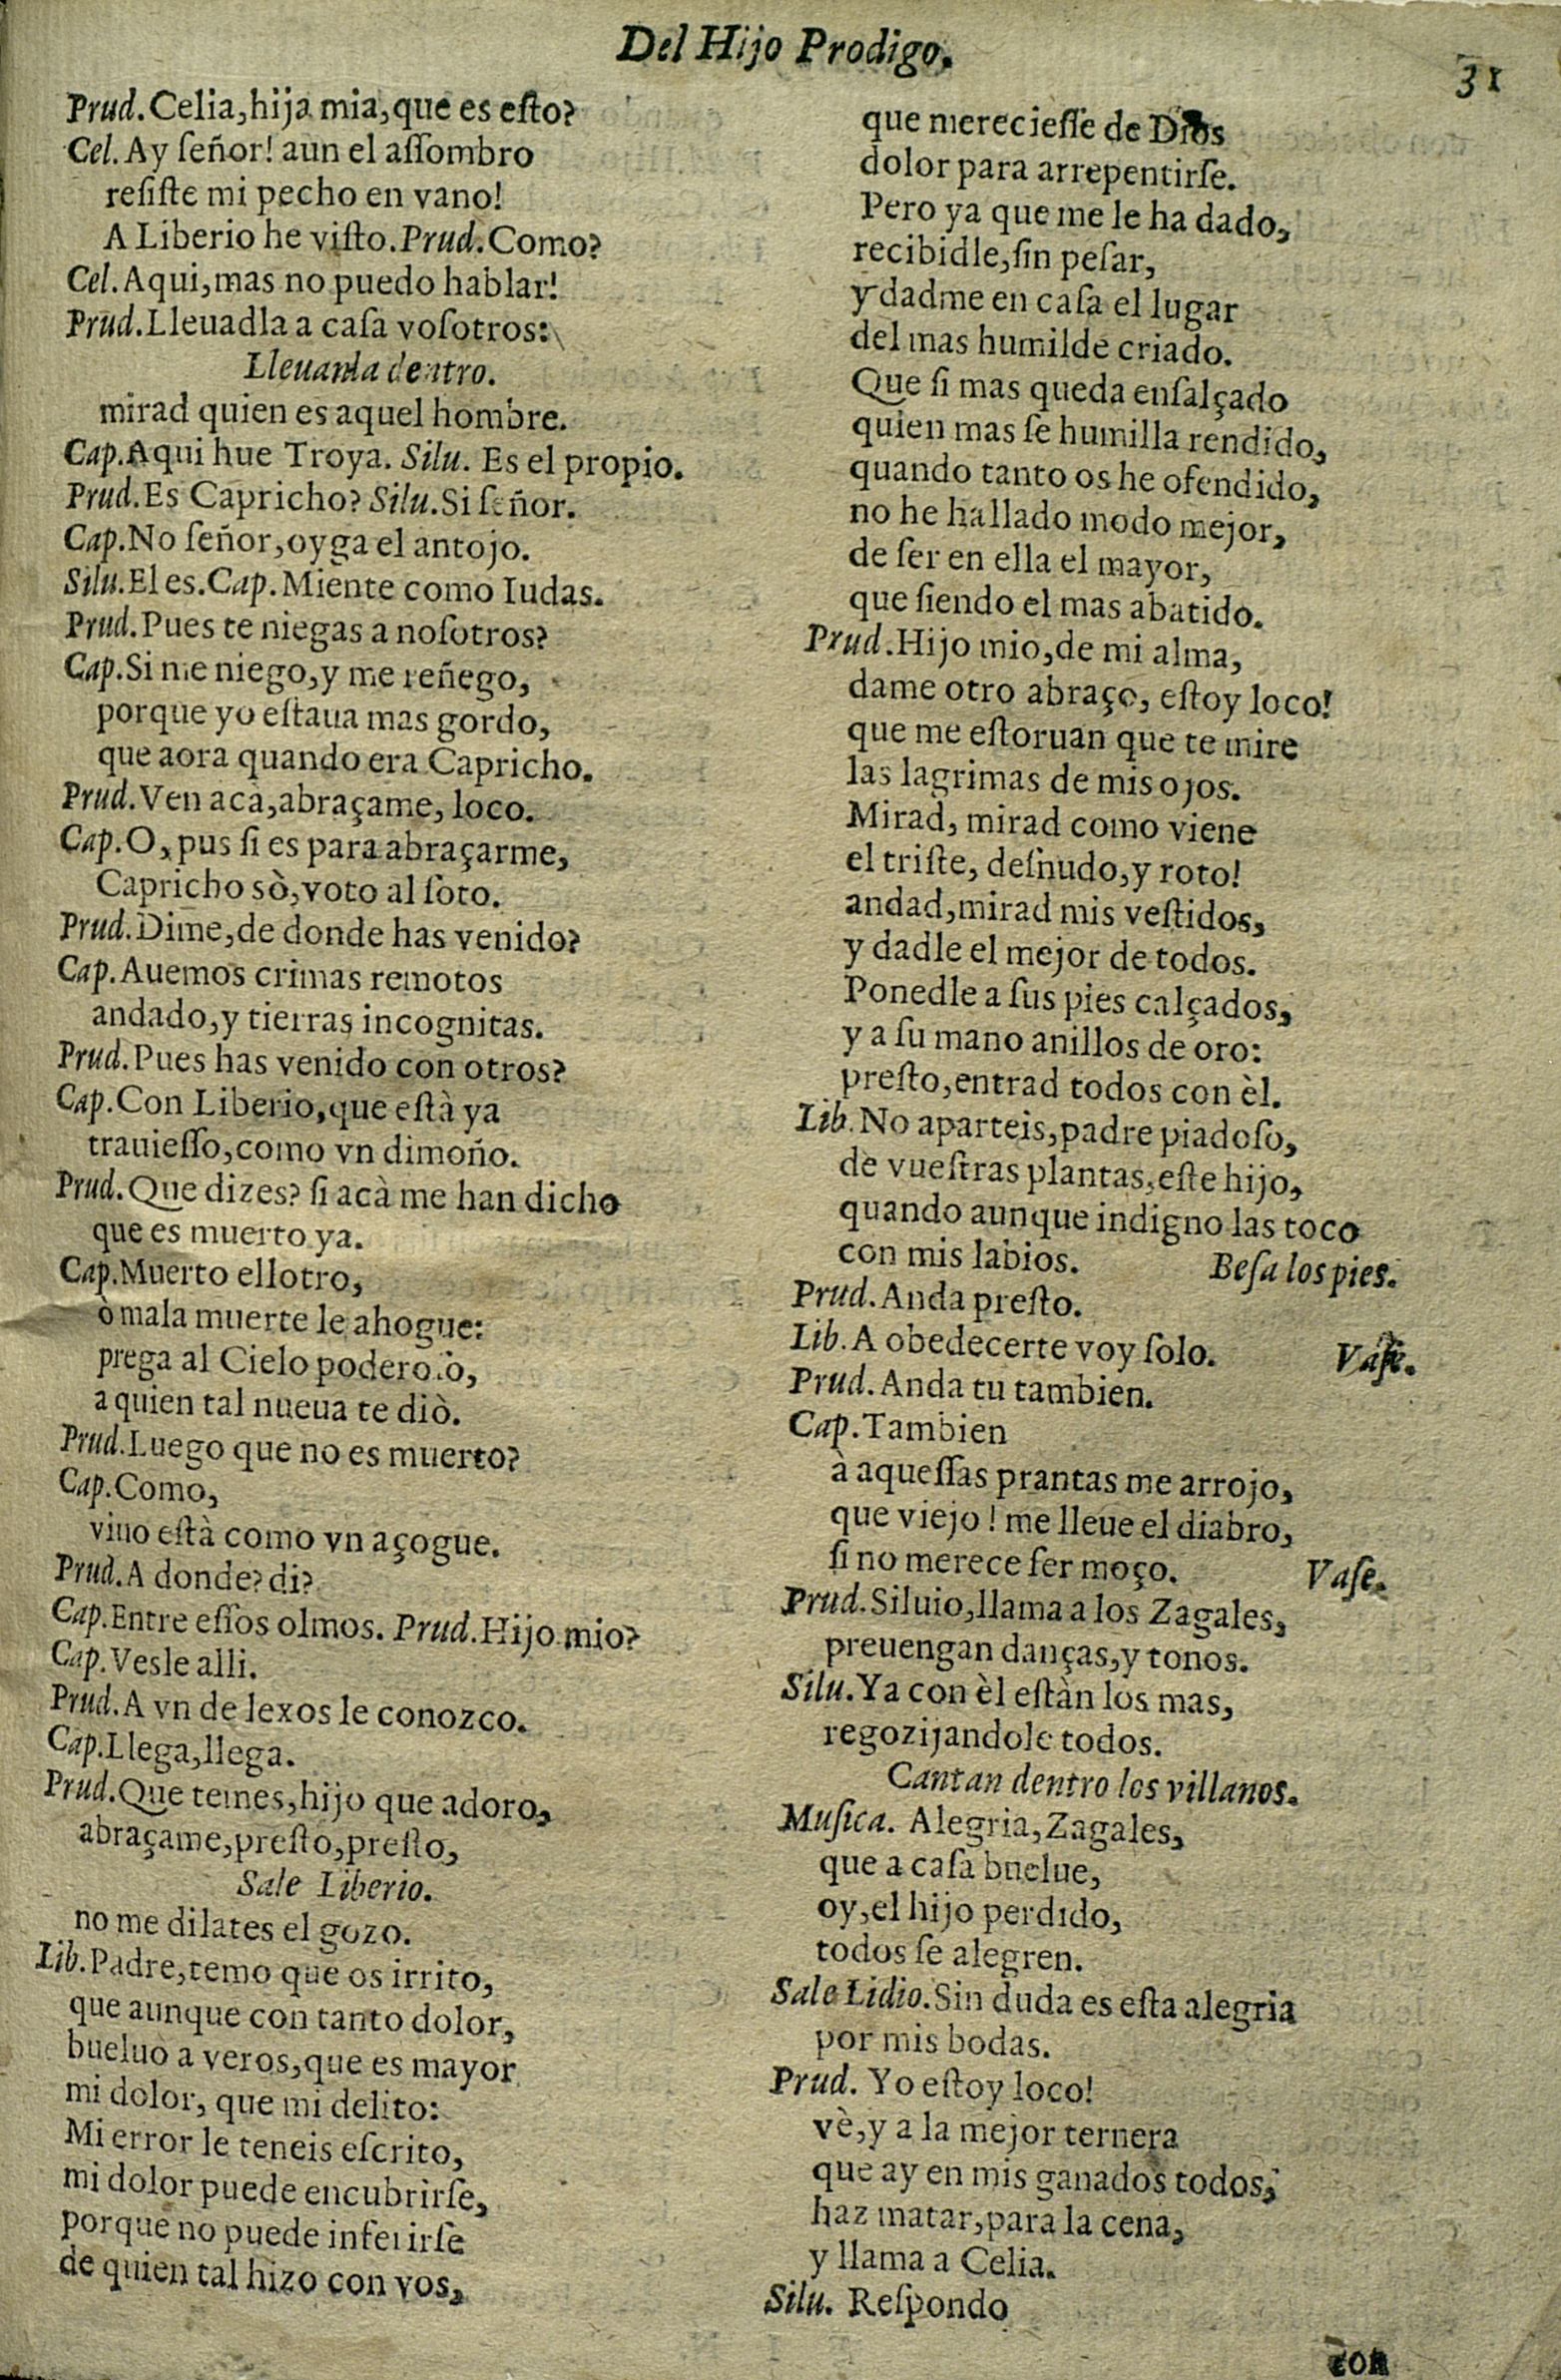 Del Hijo Prodigo.
31
Prud. Celia, hija mia, que es eſto?
Cel. Ay ſeñor! aun el aſſombro
reſiſte mi pecho en vano!
A Liberio he viſto. Prud. Como?
Cel. Aqui, mas no puedo hablar!
Prud. Lleuadla a caſa voſotros:
Lleuanla dentro.
mirad quien es aquel hombre.
Cap. Aqui hue Troya. Silu. Es el propio.
Prud. Es Capricho? Silu. Si ſeñor.
Cap. No ſeñor, oyga el antojo.
Silu. El es. Cap. Miente como Iudas.
Prud. Pues te niegas a noſotros?
Cap. Si me niego, y me reñego,
porque yo eſtaua mas gordo,
que aora quando era Capricho.
Prud. Ven acà, abraçame, loco.
Cap. O, pus ſi es para abraçarme,
Capricho sò, voto al ſoto.
Prud. Dime, de donde has venido?
Cap. Auemos crimas remotos
andado, y tierras incognitas.
Prud. Pues has venido con otros?
Cap. Con Liberio, que eſtà ya
trauieſſo, como vn dimoño.
Prud. Que dizes? ſi acà me han dicho
que es muerto ya.
Cap. Muerto ellotro,
ò mala muerte le ahogue:
prega al Cielo poderoſo,
a quien tal nueua te diò.
Prud. Luego que no es muerto?
Cap. Como,
viuo eſtà como vn açogue.
Prud. A donde? di?
Cap. Entre eſſos olmos. Prud. Hijo mio?
Cap. Vesle alli.
Prud. A vn de lexos le conozco.
Cap. Llega, llega.
Prud. Que temes, hijo que adoro,
abraçame, preſto, preſto,
Sale Liberio.
no me dilates el gozo.
Lib. Padre, temo que os irrito,
que aunque con tanto dolor,
bueluo a veros, que es mayor
mi dolor, que mi delito:
Mi error le teneis eſcrito,
mi dolor puede encubrirſe,
porque no puede inferirſe
de quien tal hizo con vos,
que merecieſſe de Dios
dolor para arrepentirſe.
Pero ya que me le ha dado,
recibidle, ſin peſar,
y dadme en caſa el lugar
del mas humilde criado.
Que ſi mas queda enſalçado
quien mas ſe humilla rendido,
quando tanto os he ofendido,
no he hallado modo mejor,
de ſer en ella el mayor,
que ſiendo el mas abatido.
Prud. Hijo mio, de mi alma,
dame otro abraço, eſtoy loco!
que me eſtoruan que te mire
las lagrimas de mis ojos.
Mirad, mirad como viene
el triſte, deſnudo, y roto!
andad, mirad mis veſtidos,
y dadle el mejor de todos.
Ponedle a ſus pies calçados,
y a ſu mano anillos de oro:
preſto, entrad todos con èl.
Lib. No aparteis, padre piadoſo,
de vueſtras plantas, eſte hijo,
quando aunque indigno las toco
con mis labios. Beſa los pies.
Prud. Anda preſto.
Lib. A obedecerte voy ſolo. Vaſe.
Prud. Anda tu tambien.
Cap. Tambien
à aqueſſas prantas me arrojo,
que viejo! me lleue el diabro,
ſi no merece ſer moço. Vaſe.
Prud. Siluio, llama a los Zagales,
preuengan danças, y tonos.
Silu. Ya con èl eſtàn los mas,
regozijandole todos.
Cantan dentro los villanos.
Muſica. Alegria, Zagales,
que a caſa buelue,
oy, el hijo perdido,
todos ſe alegren.
Sale Lidio. Sin duda es eſta alegria
por mis bodas.
Prud. Yo eſtoy loco!
vè, y a la mejor ternera
que ay en mis ganados todos,
haz matar, para la cena,
y llama a Celia.
Silu. Reſpondo
con